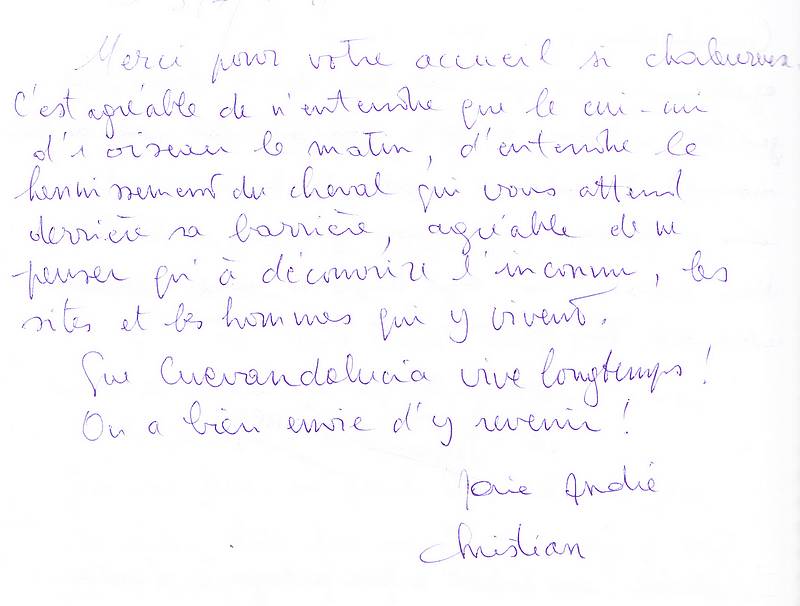 Merci pour votre accueil si chaleureux.
C'est agréable de n'entendre que le cui-cui
d'1 oiseau le matin, d'entendre le
hennissement du cheval qui vous attend
derrière sa barrière, agréable de ne
penser qu'à découvrir l'inconnu, les
sites et les hommes qui y vivent.
Que Cuevandalucia vive longtemps !
On a bien envie d'y revenir !
André
Christian